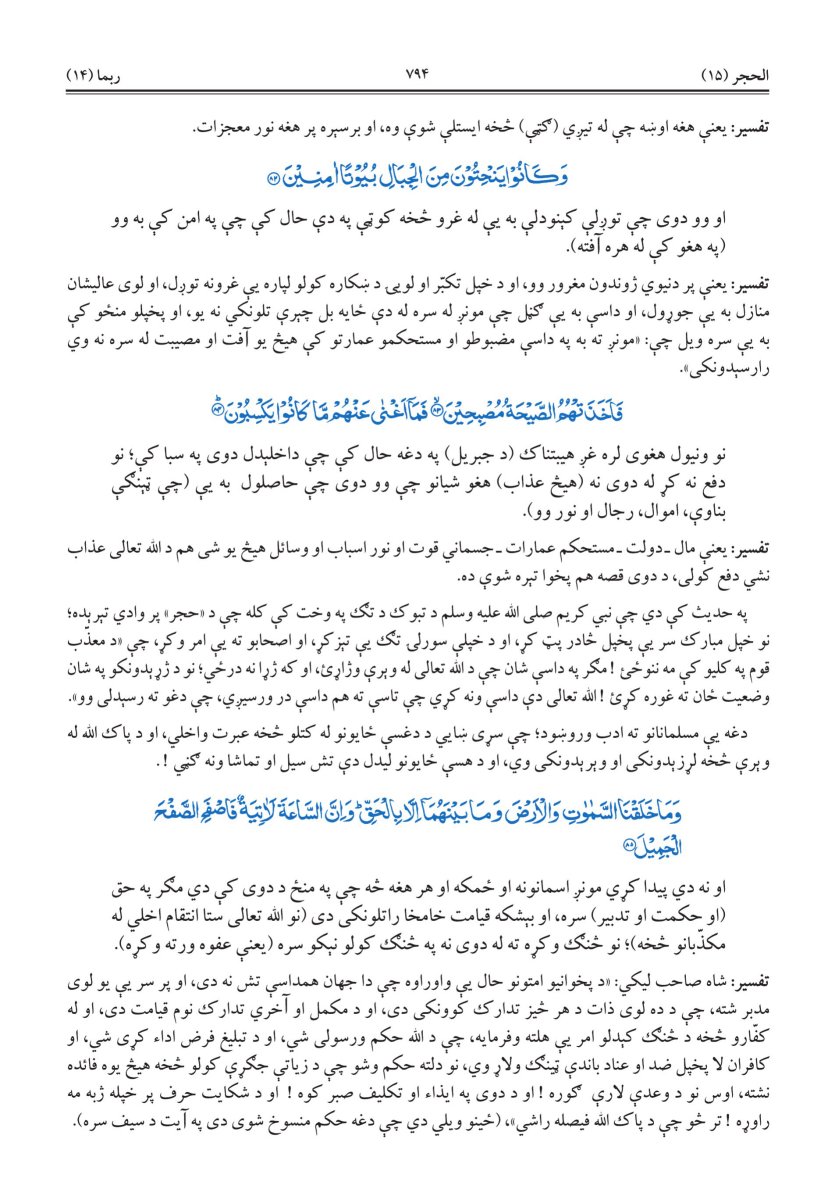 الحجر (۱۵) ۷۹۴ ربما (۱۴)
تفسير: يعنې هغه اوښه چې له تيږې (ګټې) څخه ايستلې شوې وه، او برسېره پر هغه نور معجزات.
وَكَانُوْا يَنْحِتُوْنَ مِنَ الْجِبَالِ بُيُوْتًا اٰمِنِيْنَ ﴿۸۲﴾
او وو دوی چې توږلې کېنودلې به يې له غرو څخه کوټې په دې حال کې چې په امن کې به وو
(په هغو کې له هره آفته).
تفسير: يعنې پر دنيوي ژوندون مغرور وو، او د خپل تکبّر او لويۍ د ښکاره کولو لپاره يې غرونه توږل، او لوی عاليشان
منازل به يې جوړول، او داسې به يې ګڼل چې مونږ له سره له دې ځايه بل چېرې تلونکي نه يو، او پخپلو منځو کې
به يې سره ويل چې: «مونږ ته به په داسې مضبوطو او مستحکمو عمارتو کې هيڅ يو آفت او مصيبت له سره نه وي
رارسېدونکی».
فَاَخَذَتْهُمُ الصَّيْحَةُ مُصْبِحِيْنَ ﴿۸۳﴾ فَمَآ اَغْنٰى عَنْهُمْ مَّا كَانُوْا يَكْسِبُوْنَ ﴿۸۴﴾
نو ونيول هغوی لره غږ هيبتناك (د جبريل) په دغه حال کې چې داخلېدل دوی په سبا کې؛ نو
دفع نه کړ له دوی نه (هيڅ عذاب) هغو شيانو چې وو دوی چې حاصلول به يې (چې ټېنګې
بناوې، اموال، رجال او نور وو).
تفسير: يعنې مال ـ دولت ـ مستحکم عمارات ـ جسماني قوت او نور اسباب او وسائل هيڅ يو شی هم د الله تعالی عذاب
نشي دفع کولی، د دوی قصه هم پخوا تېره شوې ده.
په حديث کې دي چې نبي کريم صلی الله عليه وسلم د تبوك د تګ په وخت کې کله چې د «حجر» پر وادي تېرېده؛
نو خپل مبارك سر يې پخپل څادر پټ کړ، او د خپلې سورلۍ تګ يې تېز کړ، او اصحابو ته يې امر وکړ، چې «د معذّب
قوم په کليو کې مه ننوځئ! مګر په داسې شان چې د الله تعالی له وېرې وژاړئ، او که ژړا نه درځي؛ نو د ژړېدونکو په شان
وضعيت ځان ته غوره کړئ! الله تعالی دې داسې ونه کړي چې تاسې ته هم داسې در ورسيږي، چې دغو ته رسېدلی وو».
دغه يې مسلمانانو ته ادب وروښود؛ چې سړی ښايي د دغسې ځايونو له کتلو څخه عبرت واخلي، او د پاك الله له
وېرې څخه لړزېدونکی او وېرېدونکی وي، او د هسې ځايونو ليدل دې تش سيل او تماشا ونه ګڼي !.
وَمَا خَلَقْنَا السَّمٰوٰتِ وَالْاَرْضَ وَمَا بَيْنَهُمَآ اِلَّا بِالْحَقِّ وَاِنَّ السَّاعَةَ لَاٰتِيَةٌ فَاصْفَحِ الصَّفْحَ
الْجَمِيْلَ ﴿۸۵﴾
او نه دي پيدا کړي مونږ اسمانونه او ځمکه او هر هغه څه چې په منځ د دوی کې دي مګر په حق
(او حکمت او تدبير) سره، او بېشکه قيامت خامخا راتلونکی دی (نو الله تعالی ستا انتقام اخلي له
مکذّبانو څخه)؛ نو څنګ وکړه ته له دوی نه په څنګ کولو نېکو سره (يعنې عفوه ورته وکړه).
تفسير: شاه صاحب ليکي: «د پخوانيو امتونو حال يې واوراوه چې دا جهان همداسې تش نه دی، او پر سر يې يو لوی
مدبر شته، چې د ده لوی ذات د هر څيز تدارك کوونکی دی، او د مکمل او آخري تدارك نوم قيامت دی، او له
کفّارو څخه د څنګ کېدلو امر يې هلته وفرمايه، چې د الله حکم ورسولی شي، او د تبليغ فرض اداء کړی شي، او
کافران لا پخپل ضد او عناد باندې ټينګ ولاړ وي، نو دلته حکم وشو چې د زياتې جګړې کولو څخه هيڅ يوه فائده
نشته، اوس نو د وعدې لارې ګوره! او د دوی په ايذاء او تکليف صبر کوه! او د شکايت حرف پر خپله ژبه مه
راوړه! تر څو چې د پاك الله فيصله راشي»، (ځينو ويلي دي چې دغه حکم منسوخ شوی دی په آيت د سيف سره).